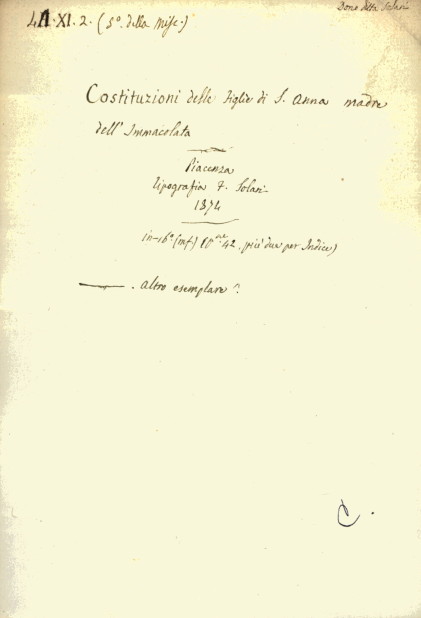 Dono della Solari
LA. XI. 2. (5°. della Misc.)
Costituzioni delle Figlie di S. Anna madre
dell' Immacolata
Piacenza
Tipografia F. Solari
1874
in-16° (mf.) 42. (più due per Indice)
. Altro esemplare
C.